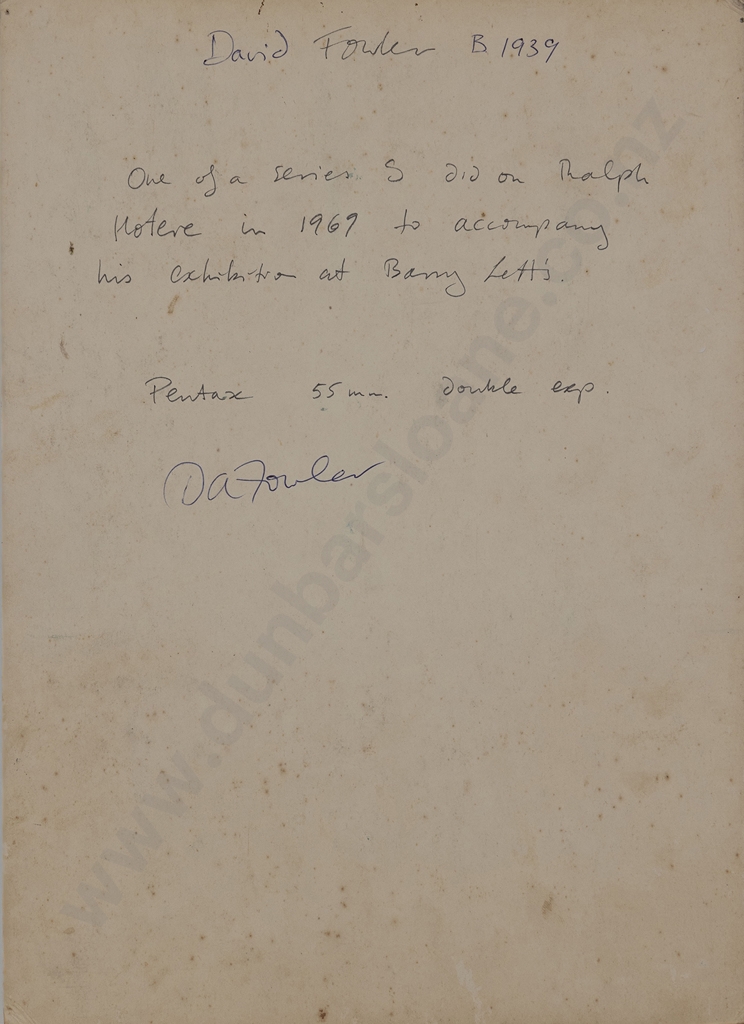 David Fowler B 1939
One of a series I did on Ralph
Hotere in 1969 to accompany
his exhibition at Barry Lett's.
Pentax 55 mm. double exp.
DAFowler
www.dunbarsloane.co.nz